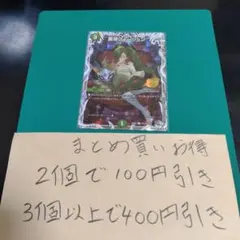 まとめ買いお得
2個で100円引き
3個以上で400円引き